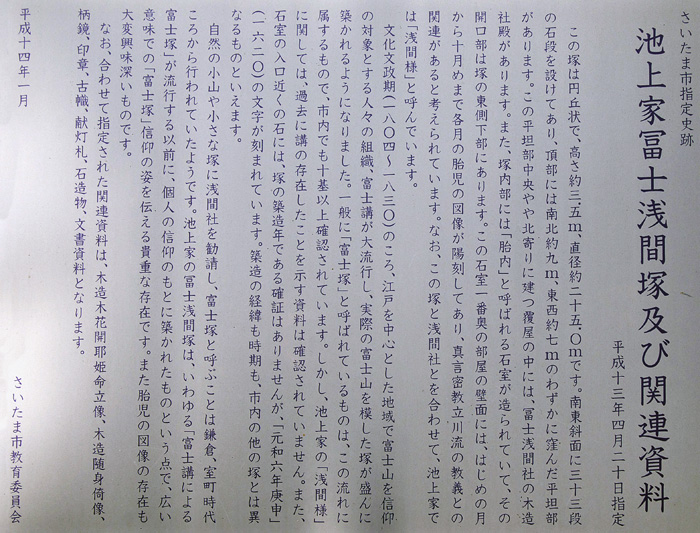 さいたま市指定史跡
池上家冨士浅間塚及び関連資料
平成十三年四月二十日指定
この塚は円丘状で、高さ約三.五m、直径約二十五.〇mです。南東斜面に三十三段
の石段を設けてあり、頂部には南北約九m、東西約七mのわずかに窪んだ平坦部
があります。この平坦部中央やや北寄りに建つ覆屋の中には、冨士浅間社の木造
社殿があります。また、塚内部には「胎内」と呼ばれる石室が造られていて、その
開口部は塚の東側下部にあります。この石室一番奥の部屋の壁面には、はじめの月
から十月めまで各月の胎児の図像が陽刻してあり、真言密教立川流の教義との
関連があると考えられています。なお、この塚と浅間社とを合わせて、池上家で
は「浅間様」と呼んでいます。
文化文政期(一八〇四〜一八三〇)のころ、江戸を中心とした地域で富士山を信仰
の対象とする人々の組織、富士講が大流行し、実際の富士山を模した塚が盛んに
築かれるようになりました。一般に「富士塚」と呼ばれているものは、この流れに
属するもので、市内でも十基以上確認されています。しかし、池上家の「浅間様」
に関しては、過去に講の存在したことを示す資料は確認されていません。また、
石室の入口近くの石には、塚の築造年である確証はありませんが、「元和六年庚申」
(一六二〇)の文字が刻まれています。築造の経緯も時期も、市内の他の塚とは異
なるものといえます。
自然の小山や小さな塚に浅間社を勧請し、富士塚と呼ぶことは鎌倉、室町時代
ころから行われていたようです。池上家の冨士浅間塚は、いわゆる「富士講による
富士塚」が流行する以前に、個人の信仰のもとに築かれたものという点で、広い
意味での「富士塚」信仰の姿を伝える貴重な存在です。また胎児の図像の存在も
大変興味深いものです。
なお、合わせて指定された関連資料は、木造木花開耶姫命立像、木造随身倚像、
柄鏡、印章、古幟、献灯札、石造物、文書資料となります。
平成十四年一月
さいたま市教育委員会